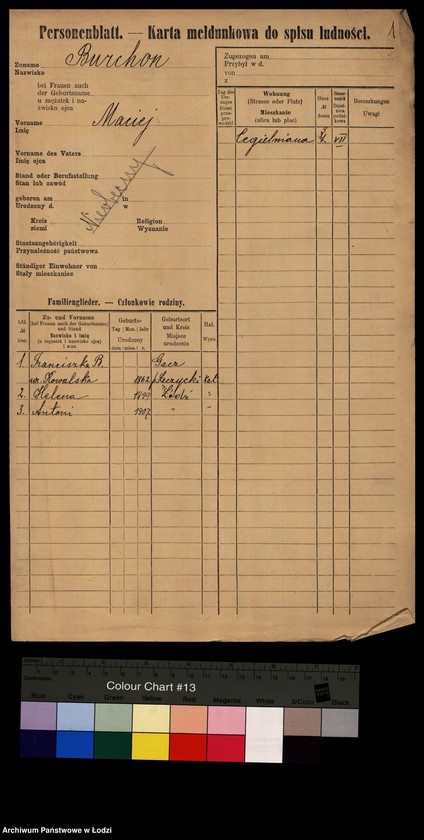 Personenblatt. — Karta meldunkowa do spisu ludności.
1
Zuname
Nazwisko
Burchon
bei Frauen auch
der Geburtsname
u mężatek i na-
zwisko ojca
Vorname
Imię
Maciej
Vorname des Vaters
Imię ojca
Stand oder Berufsstellung
Stan lub zawód
geboren am in
Urodzony d. w
Nieobecny
Kreis Religion
ziemi Wyznanie
Staatsangehörigkeit
Przynależność państwowa
Ständiger Einwohner von
Stały mieszkaniec
Zugezogen am
Przybył w d.
von
z
Wohnung
(Strasse oder Platz)
Mieszkanie
(ulica lub plac)
Haus
№
domu
Bemerkungen
Uwagi
Cegielniana
VII
Familienglieder. — Członkowie rodziny.
Zu- und Vorname
(bei Frauen auch der Geburtsname)
und Stand
Nazwisko i imię
(u mężatek i nazwisko ojca)
i stan
Geburts-
Tag Mon. Jahr
Urodzony
Geburtsort
und Kreis
Miejsce
urodzenia
Rel.
Wyzn.
1. Franciszka B.
ur. Kowalska 1862 p. Łęczycki kat
2. Helena 1899 Łódź "
3. Antoni 1907 " "
Colour Chart #13
Blue Cyan Green Yellow Red Magenta White 3/Color Black
Archiwum Państwowe w Łodzi